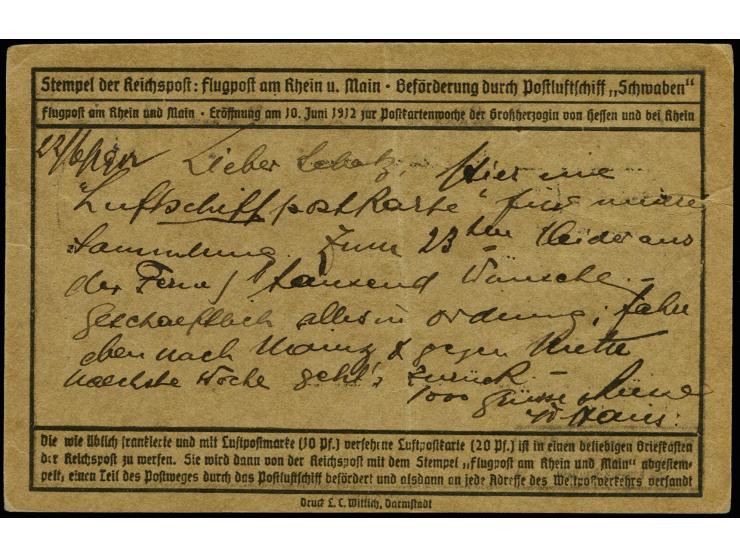 Stempel der Reichspost: Flugpost am Rhein u. Main · Beförderung durch Postluftschiff „Schwaben“
Flugpost am Rhein und Main · Eröffnung am 10. Juni 1912 zur Postkartenwoche der Großherzogin von Hessen und bei Rhein
22/6/1912 Lieber Schatz, Hier eine
"Luftschiffpostkarte" für
Sammlung. Zum 23ten leider aus
der Ferne / tausend Wünsche –
Geschaeftlich alles in ordnung; fahre
eben nach Mainz & gegen Mitte
naechste Woche geht's zurück –
1000 Grüsse & Küsse
Hans.
Die wie üblich frankierte und mit Luftpostmarke (10 Pf.) versehene Luftpostkarte (20 Pf.) ist in einen beliebigen Briefkasten
der Reichspost zu werfen. Sie wird dann von der Reichspost mit dem Stempel „Flugpost am Rhein und Main“ abgestem-
pelt, einen Teil des Postweges durch das Postluftschiff befördert und alsdann an jede Adresse des Weltpostverkehrs versandt
Druck L. C. Wittich, Darmstadt